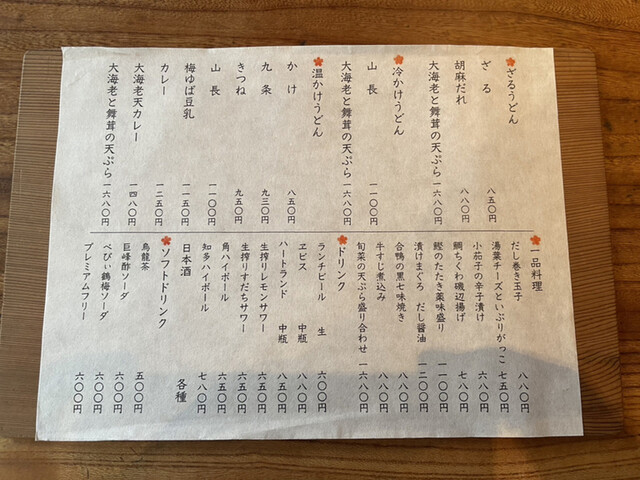 ざるうどん
ざる 八五〇円
胡麻だれ 八八〇円
大海老と舞茸の天ぷら 一六八〇円
冷かけうどん
山長 一一〇〇円
大海老と舞茸の天ぷら 一六八〇円
温かけうどん
かけ 八五〇円
九条 九三〇円
きつね 九五〇円
山長 一一〇〇円
梅ゆば豆乳 一一五〇円
カレー 一二五〇円
大海老天カレー 一四八〇円
大海老と舞茸の天ぷら 一六八〇円
一品料理
だし巻き玉子 八八〇円
湯葉チーズといぶりがっこ 七五〇円
小茄子の辛子漬け 六八〇円
鯛ちくわ磯辺揚げ 七八〇円
鰹のたたき薬味盛り 一一〇〇円
漬けまぐろ だし醤油 一二〇〇円
合鴨の黒七味焼き 八八〇円
牛すじ煮込み 八八〇円
旬菜の天ぷら盛り合わせ 一六八〇円
ドリンク
ランチビール 生 六〇〇円
ヱビス 中瓶 八八〇円
ハートランド 中瓶 八五〇円
生搾りレモンサワー 六五〇円
生搾りすだちサワー 六五〇円
角ハイボール 六五〇円
知多ハイボール 七八〇円
日本酒 各種
ソフトドリンク
烏龍茶 五〇〇円
巨峰酢ソーダ 六〇〇円
べびぃ鶴梅ソーダ 六〇〇円
プレミアムフリー 六〇〇円